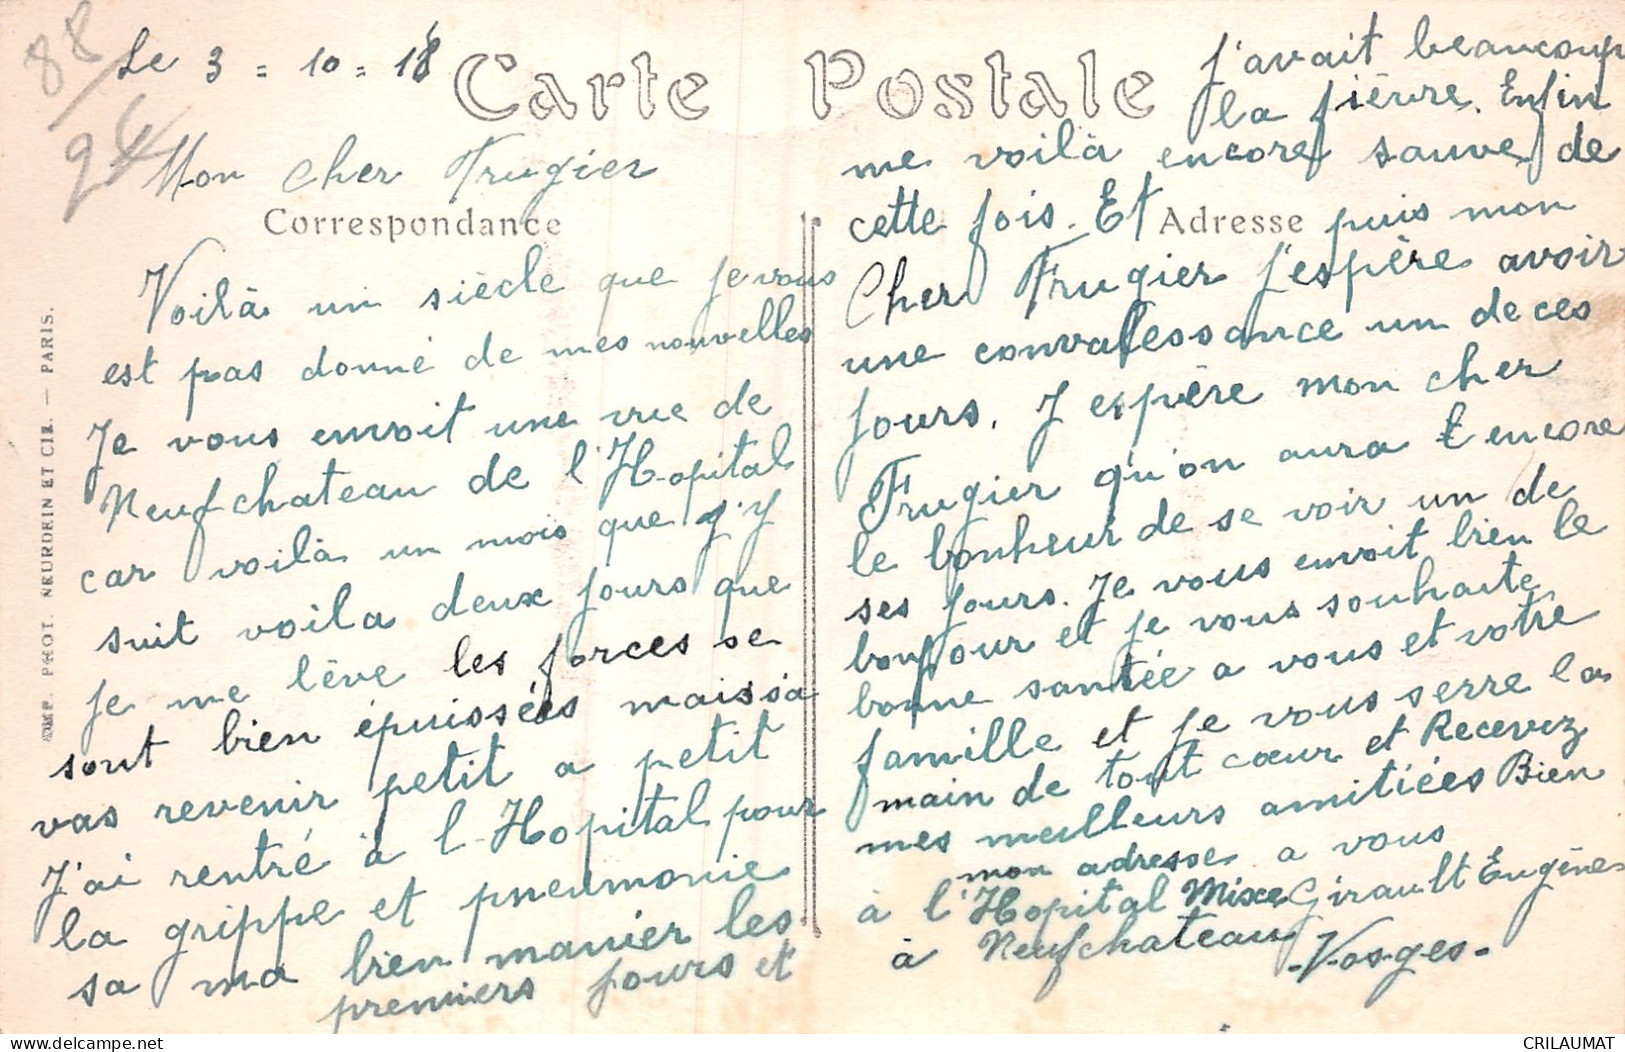 88
94
Le 3 = 10 = 18
Carte Postale
Mon cher Frugier
Correspondance
Voilà un siècle que je vous
est pas donné de mes nouvelles
Je vous envoit une vue de
Neufchateau de l'Hopital
car voilà un mois que j'y
suit voila deux jours que
je me lève les forces se
sont bien épuissées mais sa
vas revenir petit a petit
J'ai rentré à l'Hopital pour
la grippe et pneumonie
sa ma bien manier les
premiers jours et
J'avait beaucoup
la fièvre. Enfin
me voilà encore sauve de
cette fois. Et puis mon
Adresse
Cher Frugier j'espère avoir
une convalessance un de ces
jours. J espère mon cher
Frugier qu'on aura encore
le bonheur de se voir un de
ses jours. Je vous envoit bien le
bonjour et je vous souhaite
bonne santée a vous et votre
famille et je vous serre la
main de tout cœur et Recevez
mes meilleurs amitiées Bien
a vous
mon adresse
Girault Eugène
à l'Hopital Mixe
à Neufchateau
- Vosges -
COMP. PHOT. NEURDEIN ET CIE. — PARIS.
CRILAUMAT